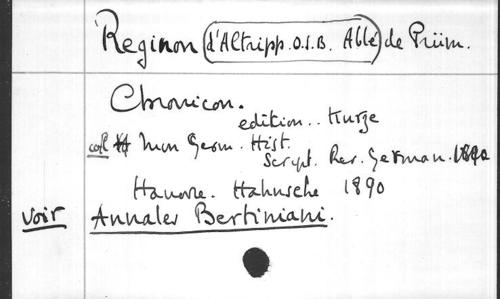 Reginon (d'Altripp. O.S.B. Abbé) de Prüm.
Chronicon.
edition.. Kurze
coll Mon Germ. Hist.
Script. Rer. German. 1890
Hanovre. Hahnsche 1890
voir Annales Bertiniani.